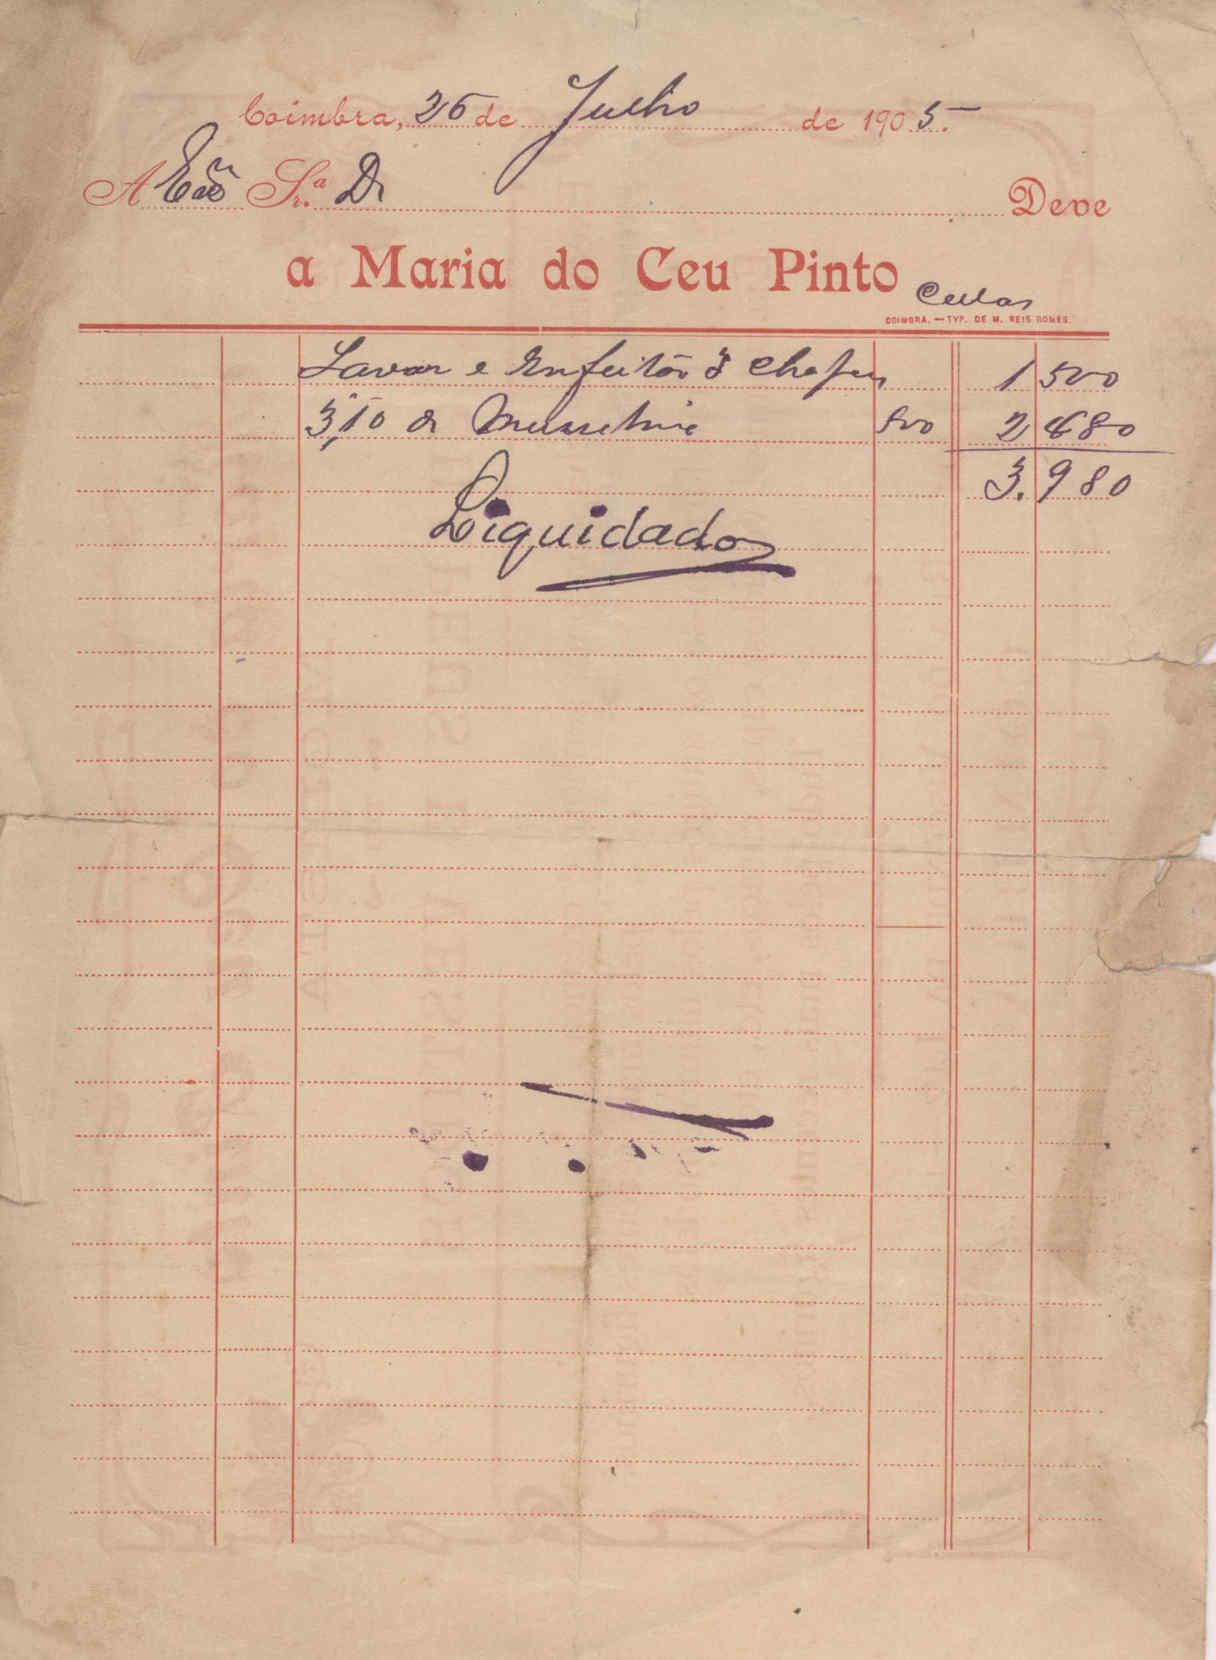 Coimbra, 26 de Julho de 1905.
A Exª Sr.ª D. Deve
a Maria do Ceu Pinto
Cellas
COIMBRA. — TYP. DE M. REIS GOMES.
Lavar e Enfeitar 3 Chapeus 1 500
3,10 de Musselina 800 2 480
3.980
Liquidado